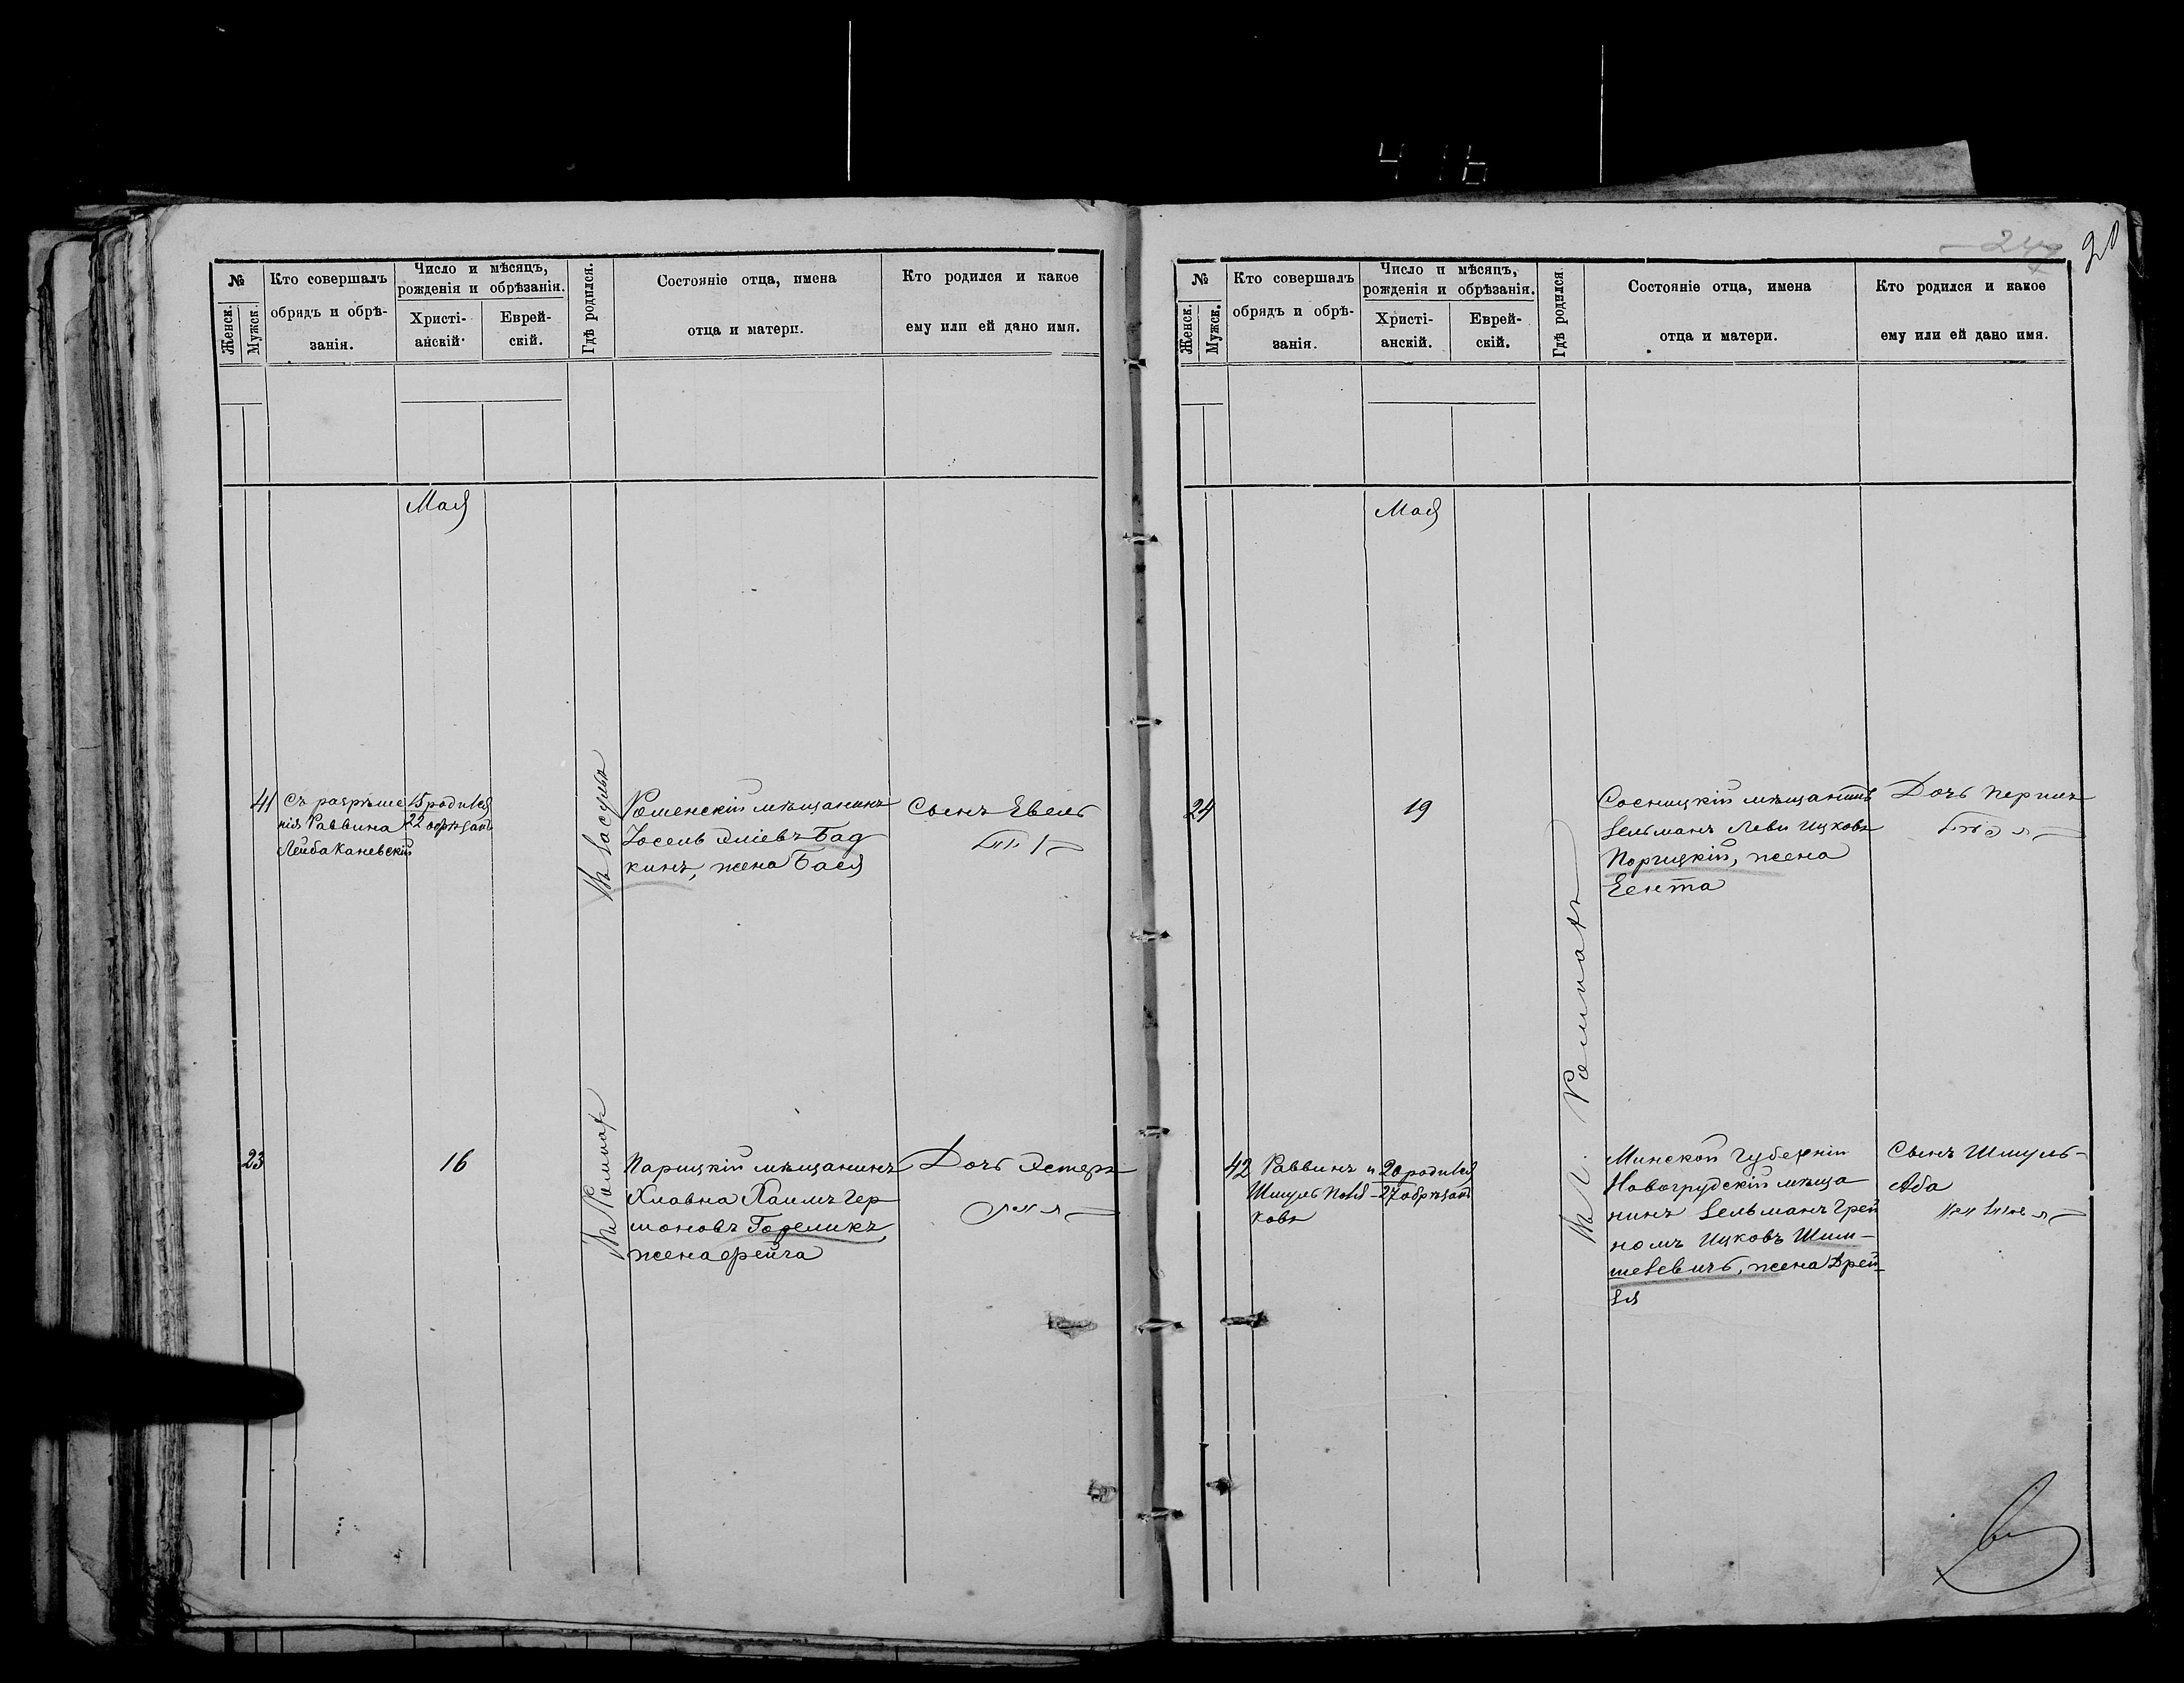 41б
№
Женск.
Мужск.
Кто совершалъ
обрядъ и обрѣ-
занія.
Число и мѣсяцъ,
рожденія и обрѣзанія.
Христі-
анскій.
Еврей-
скій.
Гдѣ родился.
Состояніе отца, имена
отца и матери.
Кто родился и какое
ему или ей дано имя.
Мая
41
Съ разрѣше
нія Раввина
Лейба Каневскій
15 родился
22 обрѣзанъ
Роменскій мѣщанинъ
Іосель Эліевъ Бад
кинъ, жена Бася
Сынъ Евель
23
16
Парицкій мѣщанинъ
Хлавна Хаимъ Гер
шоновъ Гореликъ,
жена Фейга
Дочь Эстеръ
247
20
№
Женск.
Мужск.
Кто совершалъ
обрядъ и обрѣ-
занія.
Число и мѣсяцъ,
рожденія и обрѣзанія.
Христі-
анскій.
Еврей-
скій.
Гдѣ родился
Состояніе отца, имена
отца и матери.
Кто родился и какое
ему или ей дано имя.
Мая
24
19
Въ г. Ромнахъ
Сосницкій мѣщанинъ
Зельманъ Леви Ицковъ
Порицкій, жена
Ента
Дочь Перль
42
Раввинъ и
Шмуль
ковъ
20 родился
27 обрѣзанъ
Минской Губерніи
Новогрудскій мѣща
нинъ Зельманъ Грей
номъ Ицковъ Шим-
шелевичъ, жена Дрей-
зя
Сынъ Шмуль-
Аба